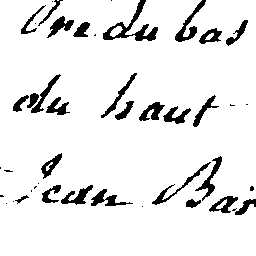 Pre du bas
du haut
Jean Bar